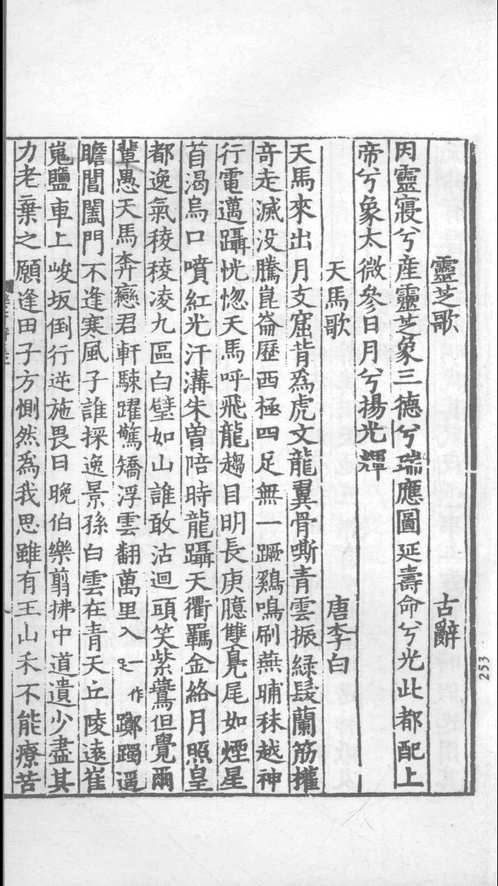 靈芝歌 古辭
因靈寢兮產靈芝象三德兮瑞應圖延壽命兮光此都配上
帝兮象太微參日月兮揚光輝
天馬歌 唐李白
天馬來出月支窟背為虎文龍翼骨嘶青雲振綠髮蘭筋權
奇走滅沒騰崑崙歷西極四足無一蹶雞鳴刷燕晡秣越神
行電邁躡恍惚天馬呼飛龍趨目明長庚臆雙鳧尾如煙星
首渴烏口噴紅光汗溝朱曾陪時龍躡天衢羈金絡月照皇
都逸氣稜稜凌九區白璧如山誰敢沽迴頭笑紫鷰但覺爾
輩愚天馬奔戀君軒駷躍驚矯浮雲翻萬里入一作躑躅遥
瞻閶闔門不逢寒風子誰探逸景孫白雲在青天丘陵遠崔
嵬鹽車上峻坂倒行逆施畏日晚伯樂翦拂中道遺少盡其
力老棄之願逢田子方惻然為我思雖有王山禾不能療苦
253